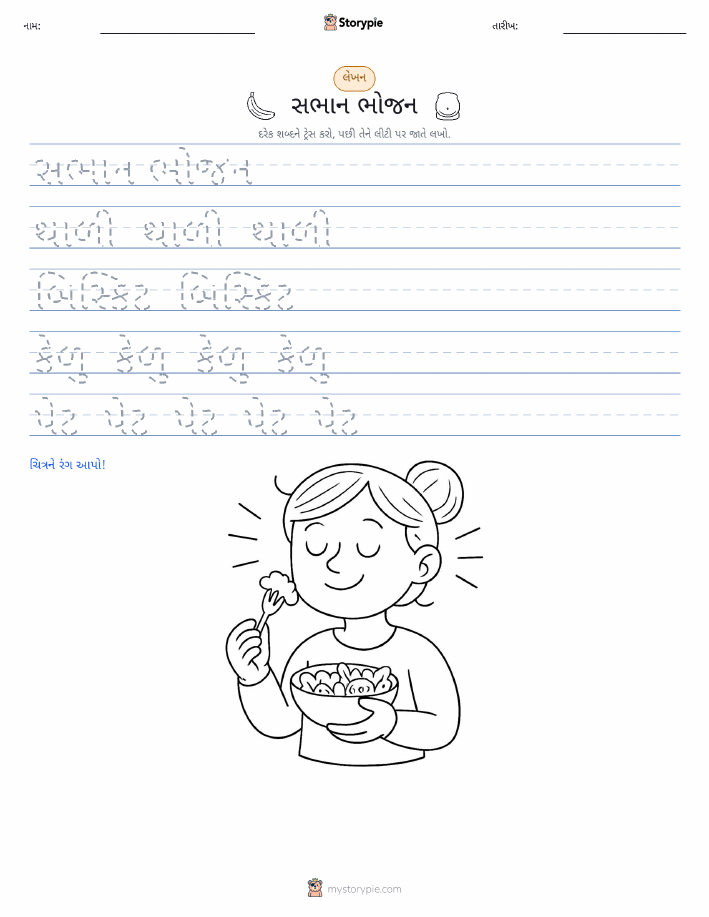 નામ:
Storypie
તારીખ:
લેખન
સભાન ભોજન
દરેક શબ્દને ટ્રેસ કરો, પછી તેને લીટી પર જાતે લખો.
સભાન ભોજન
થાળી થાળી થાળી
બિસ્કિટ બિસ્કિટ
કેળુ કેળુ કેળુ કેળુ
પેટ પેટ પેટ પેટ પેટ
ચિત્રને રંગ આપો!
mystorypie.com